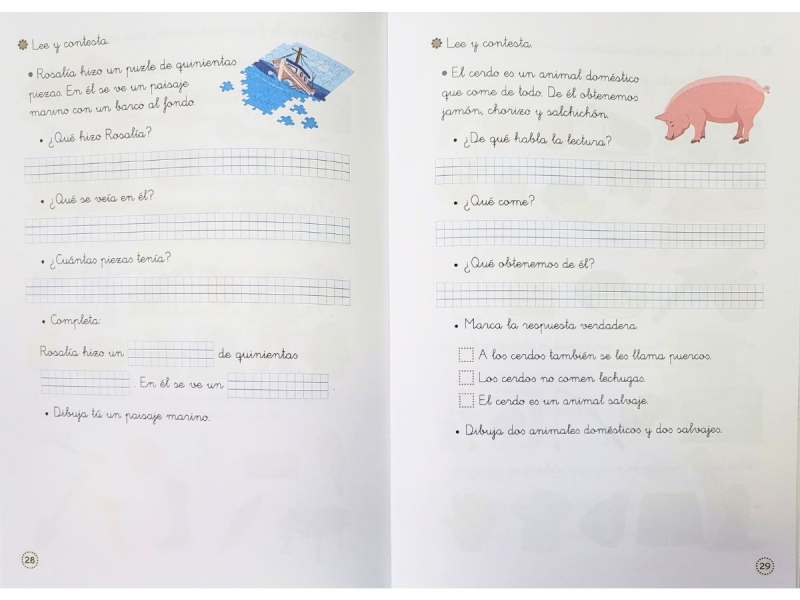 Lee y contesta.
• Rosalía hizo un puzle de quinientas
piezas. En él se ve un paisaje
marino con un barco al fondo.
• ¿Qué hizo Rosalía?
• ¿Qué se veía en él?
• ¿Cuántas piezas tenía?
• Completa:
Rosalía hizo un de quinientas
. En él se ve un .
• Dibuja tú un paisaje marino.
28
Lee y contesta.
• El cerdo es un animal doméstico
que come de todo. De él obtenemos
jamón, chorizo y salchichón.
• ¿De qué habla la lectura?
• ¿Qué come?
• ¿Qué obtenemos de él?
• Marca la respuesta verdadera.
A los cerdos también se les llama puercos.
Los cerdos no comen lechugas.
El cerdo es un animal salvaje.
• Dibuja dos animales domésticos y dos salvajes.
29